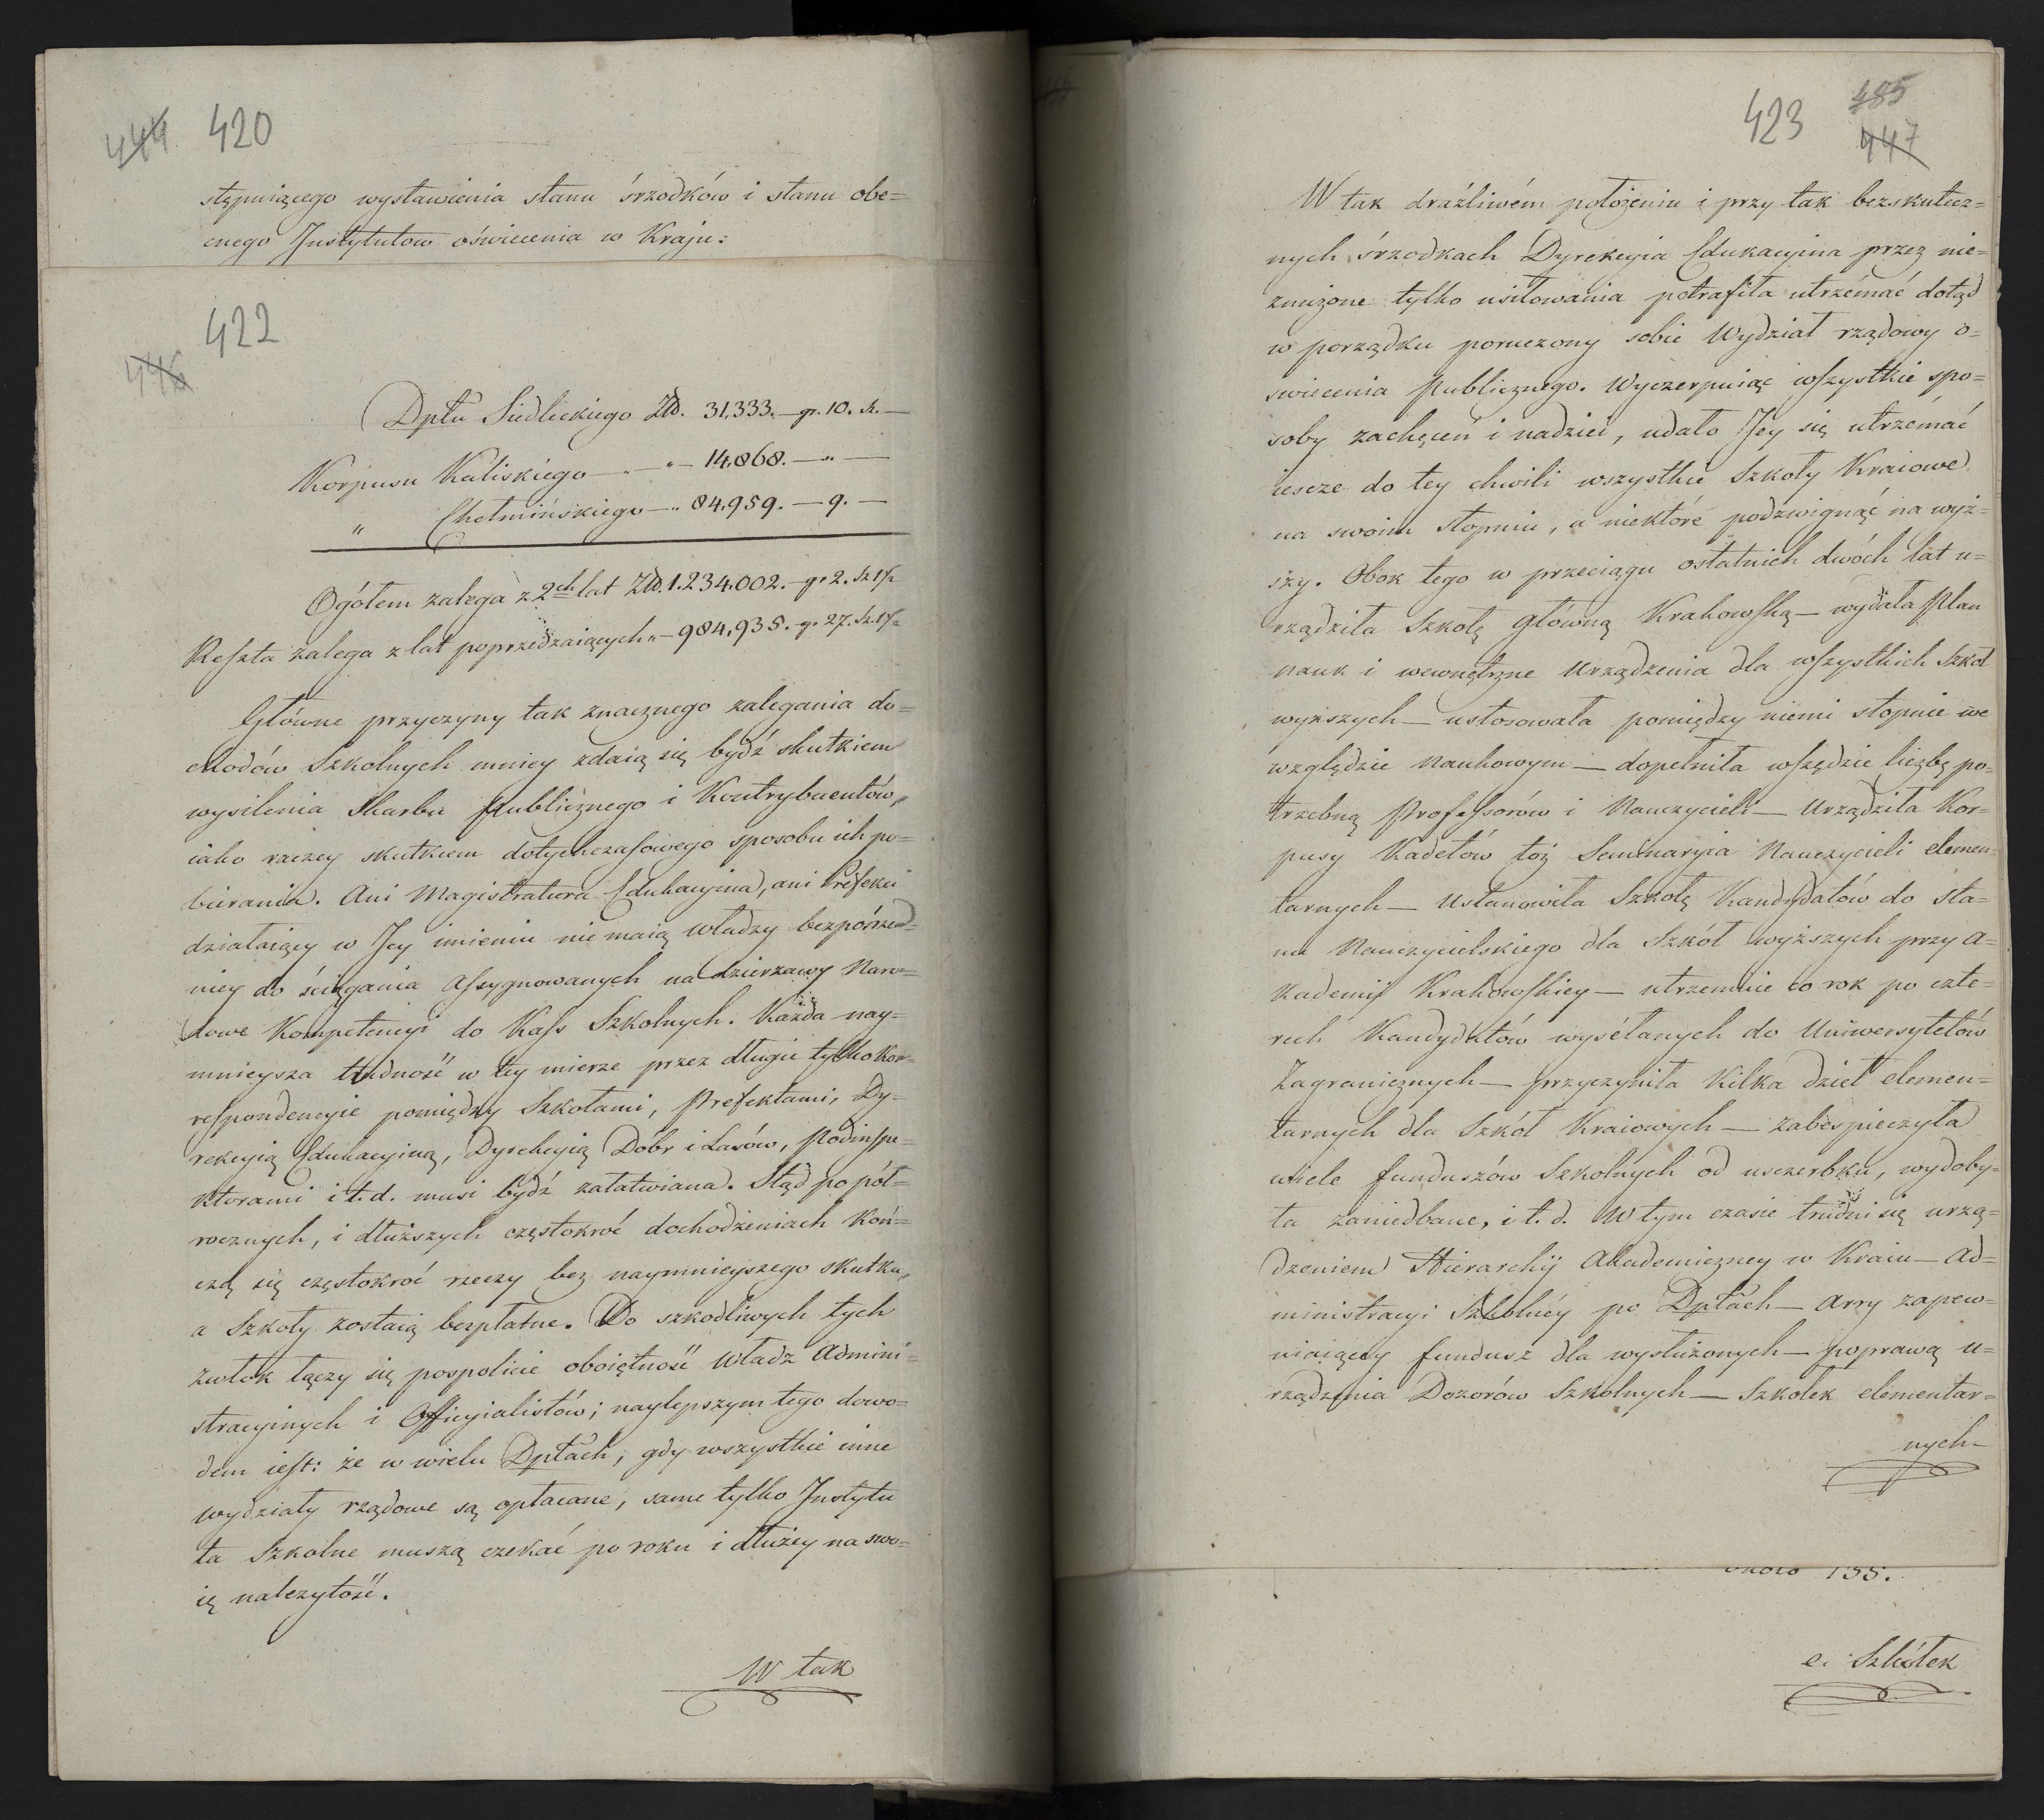 444 420
stępuiącego wystawienia stanu śrzodków i stanu obe=
cnego Jnstytutow oświecenia w Kraju:
422
446
Dptu Siedleckiego Zło. 31.333.—gr. 10. sz.—
Korpusu Kaliskiego — „ — 14,868. — „ —
„ Chełmińskiego — „ 84,959. — 9. —
Ogółem zalega z 2ch lat Zło. 1.234.002.—gr 2. sz 1½
Reszta zalega z lat poprzedzaiących „ — 984,935. gr 27. sz. 1½
Główne przyczyny tak znacznego zalegania do=
chodów Szkolnych mniey zdaią się bydź skutkiem
wysilenia Skarbu publicznego i Kontrybuentów,
iako raczey skutkiem dotychczasowego sposobu ich po=
bierania. Ani Magistratura Edukacyina, ani Prefekci
działaiący w Jey imieniu nie maią władzy bezpośrzed=
niey do ściągania assygnowanych na dzierzawy Naro=
dowe Kompetencyi do Kass Szkolnych. Każda nay=
mnieysza trudność w tey mierze przez długie tylko Kor=
respondencyie pomiędzy Szkołami, Prefektami, Dy=
rekcyią Edukacyiną, Dyrekcyią Dóbr i Lasów, Podinspe=
ktorami i t. d. musi bydź załatwiana. Stąd po pół=
rocznych, i dłuższych częstokroć dochodzeniach Koń=
czą się częstokroć rzeczy bez naymnieyszego skutku,
a Szkoły zostaią bezpłatne. Do szkodliwych tych
zwłok łączy się pospolicie oboiętność Władz Admini=
stracyinych i Officyialistów; naylepszym tego dowo=
dem iest: że w wielu Dptach, gdy wszystkie inne
wydziały rządowe są opłacane, same tylko Jnstytu
ta Szkolne muszą czekać po roku i dłużey na swo=
ię należytość.
W tak
423 485
447
W tak draźliwém położeniu i przy tak bezskutecz=
nych śrzodkach Dyrekcyia Edukacyina przez nie=
zmużone tylko usiłowania potrafiła utrzémać dotąd
w porządku poruczony sobie Wydział rządowy o=
swiecenia Publicznego. Wyczerpuiąc wszystkie spo=
soby zachęceń i nadziei, udało Jey się utrzémać
iescze do tey chwili wszystkie Szkoły Kraiowe
na swoim stopniu, a niektóre podzwignąć na wyż=
szy. Obok tego w przeciągu ostatnich dwóch lat u=
rządziła Szkołę główną Krakowską — wydała Plan
nauk i wewnętrzne Urządzenia dla wszystkich Szkół
wyższych — ustosowała pomiędzy niemi stopnie we
względzie Naukowym — dopełniła wszędzie liczbę po=
trzebną Professorów i Nauczycieli — Urządziła Kor=
pusy Kadetów toż Seminaryia Nauczycieli elemen=
tarnych — Ustanowiła Szkołę Kandydatów do sta=
nu Nauczycielskiego dla Szkół wyższych przy A=
kademij Krakowskiey — utrzemuie co rok po czte=
rech Kandydatów wyséłanych do Uniwersytetów
Zagranicznych — przyczyniła Kilka dzieł elemen=
tarnych dla Szkół Kraiowych — zabespieczyła
wiele funduszów Szkolnych od usczerbku, wydoby=
ła zaniedbane, i t. d. W tym czasie trudni się urzą=
dzeniem Hierarchij Akademiczney w Kraiu — Ad=
ministracyi Szkolnéy po Dptach — Arzy zapew=
niaiącéy fundusz dla wysłużonych — poprawą u=
rządzenia Dozorów Szkolnych — Szkołek elementar=
nych-
około 155.
e. Szkółek